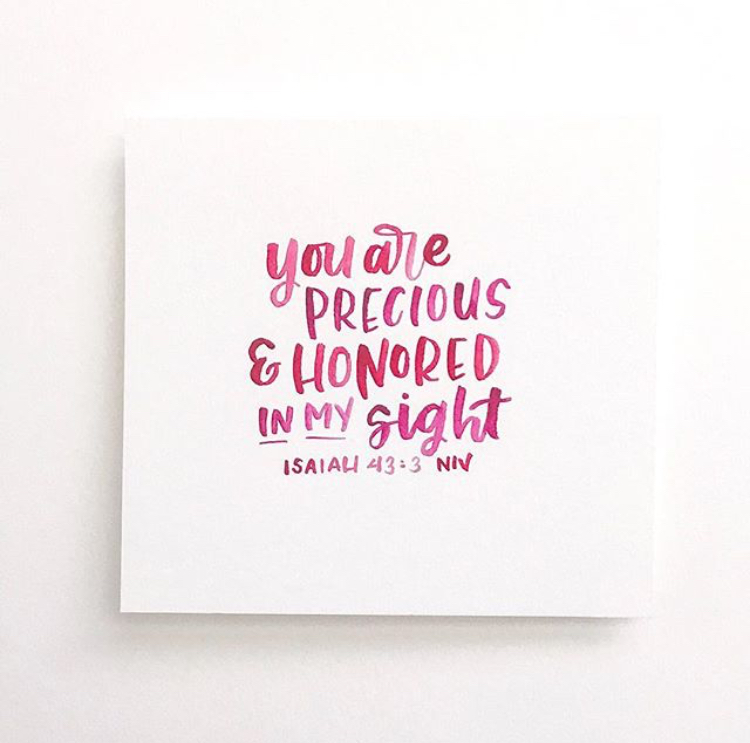 you are
PRECIOUS
& HONORED
IN MY sight
ISAIAH 43:3 NIV